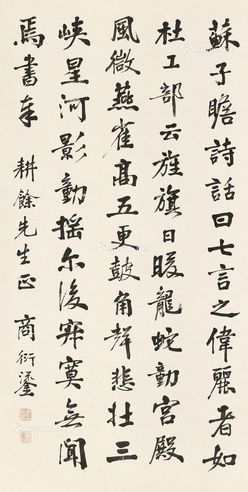 蘇子瞻詩話曰七言之偉麗者如
杜工部云旌旗日暖龍蛇動宮殿
風微燕雀高五更鼓角聲悲壯三
峽星河影動搖尔後寂寞無聞
焉書奉
耕餘先生正 商衍鎏